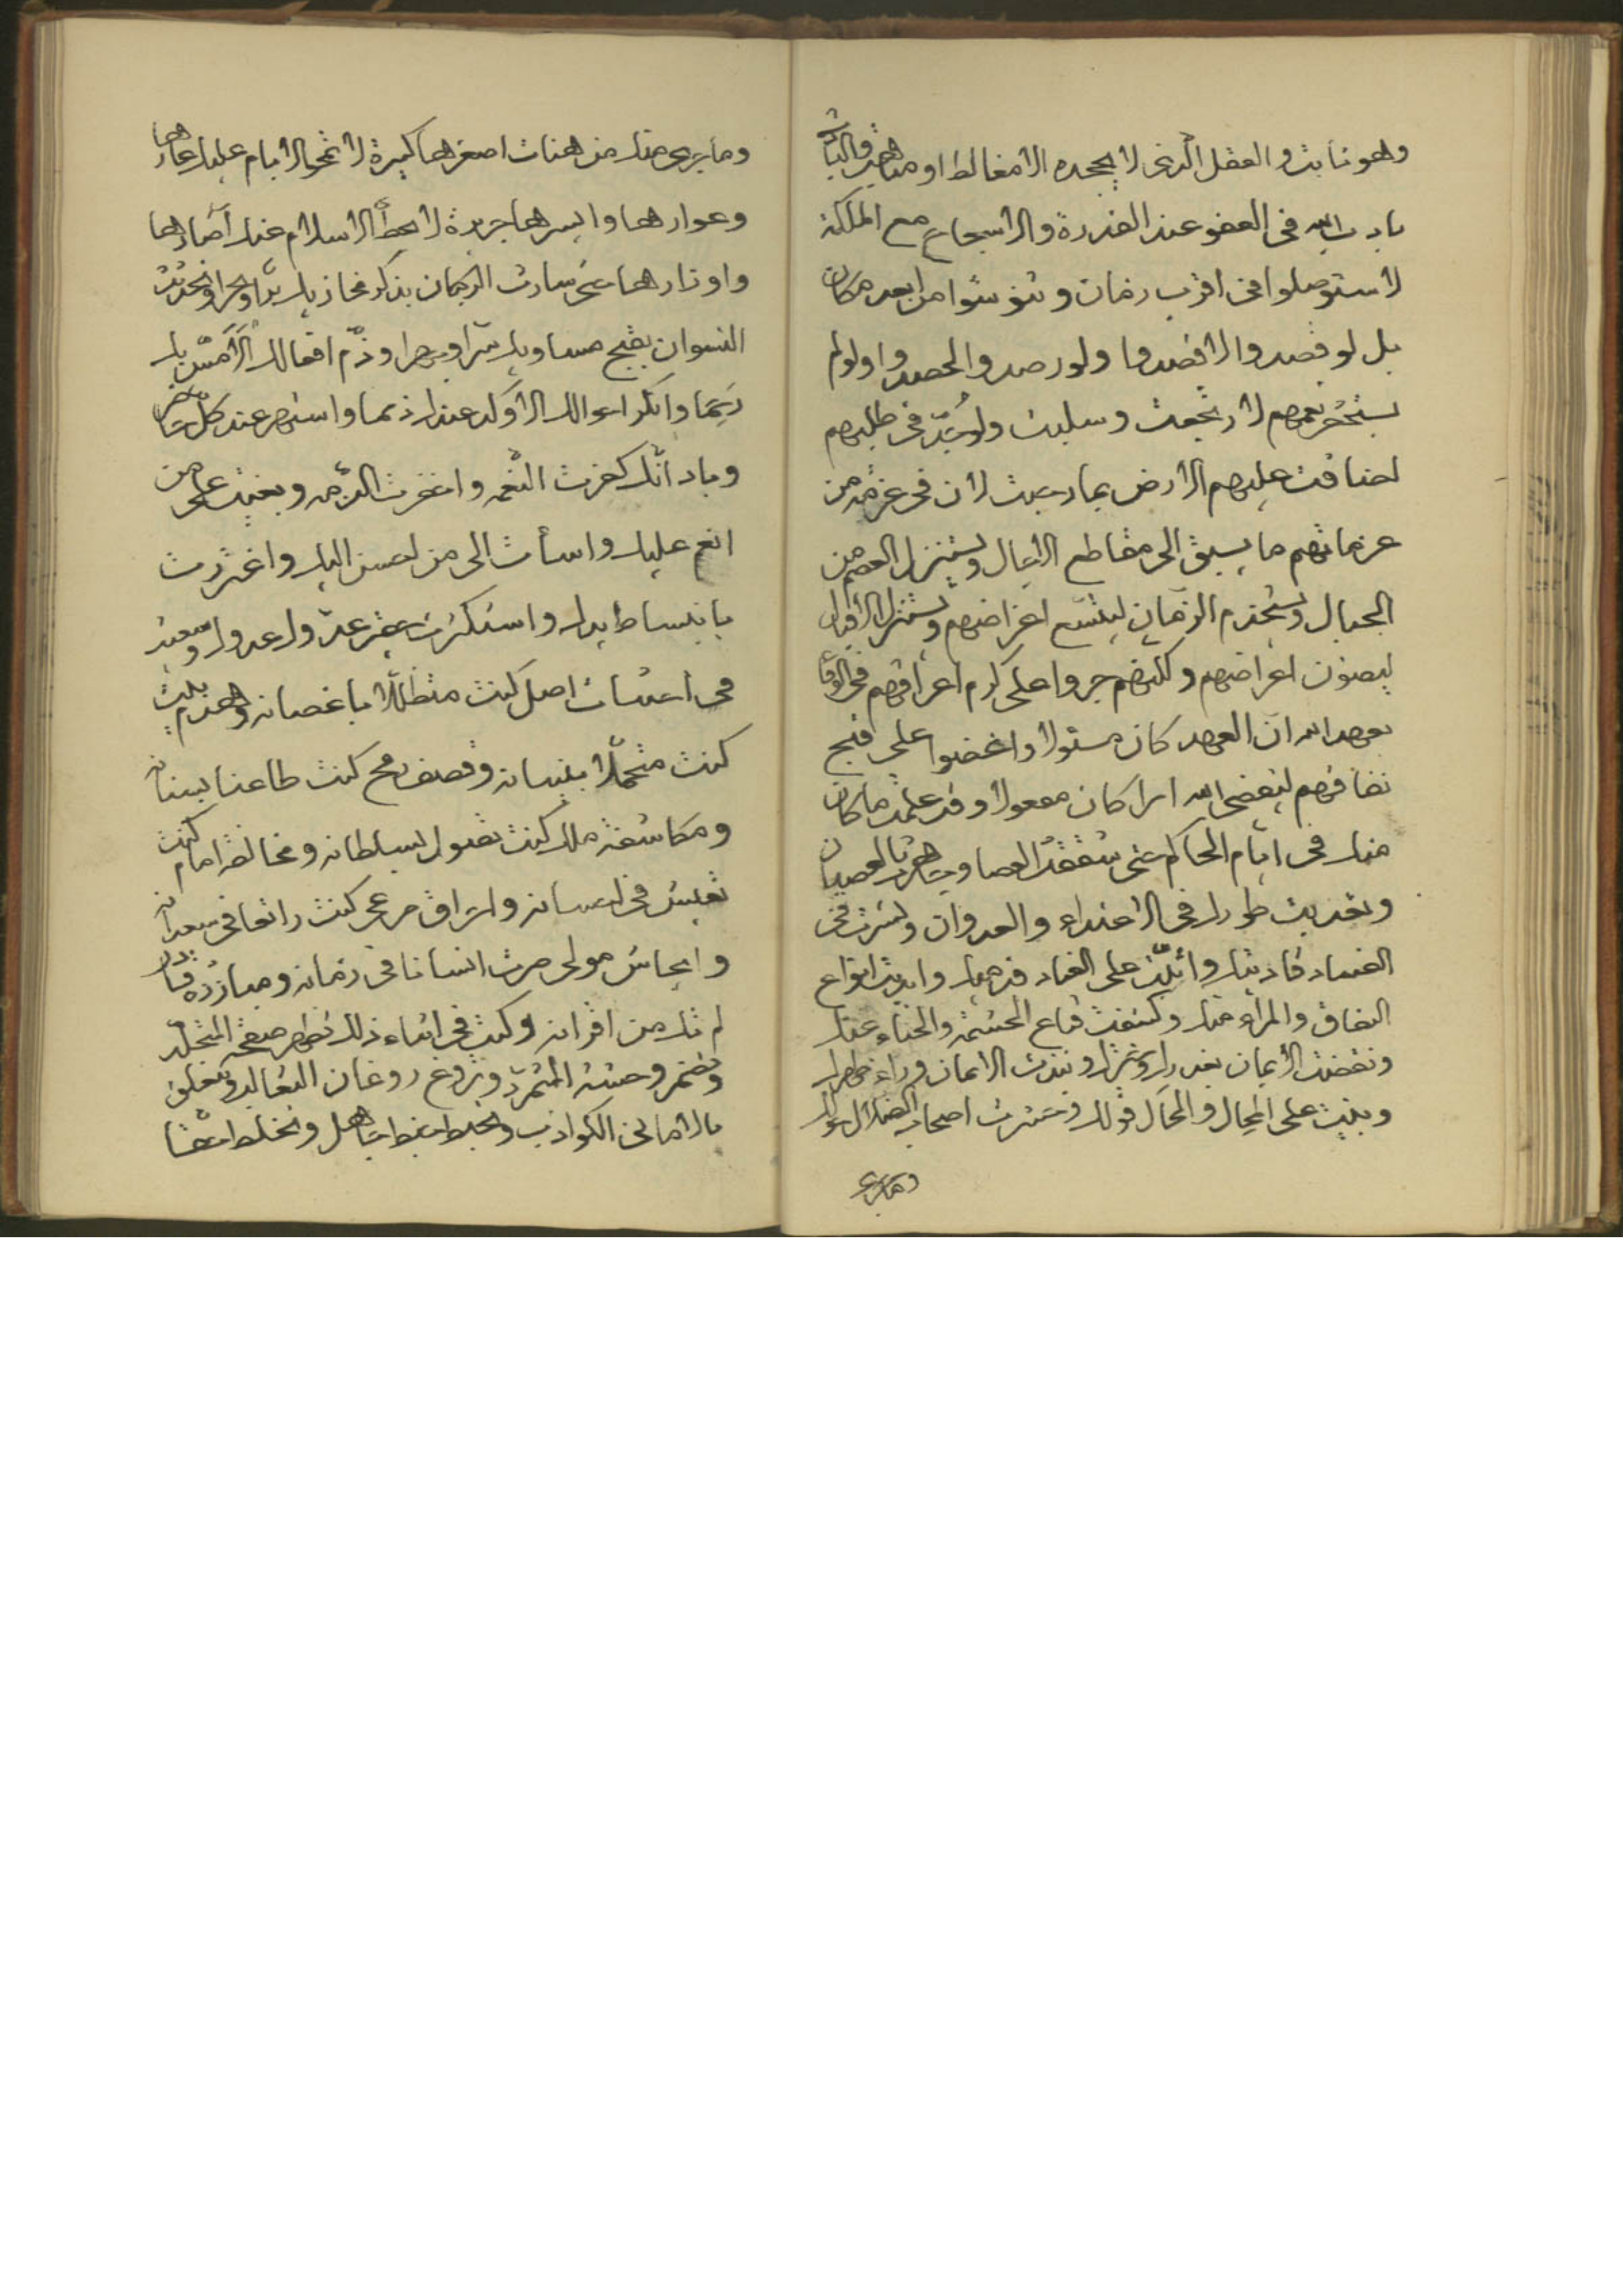 وهو ثابت والعقل الذى لا يجحده الا مغالط او
بادب الله فى العفو عند القدرة والاسجاع مع الملكة
لاستوصلوا فى اقرب زمان و من ابعد مكان
بل لو قصدوا لاقصدوا ولو رصدوا لحصدوا ولو لم
لارتجعت وسلبت ولو فى طلبهم
لضاقت عليهم الارض بما رحبت لان فى عزمة من
عزماتهم ما يسبق الى مقاطع الاجال ويستنزل العصم من
الجبال ويستخدم الزمان اغراضهم
ليصون اعراضهم ولكنهم جروا على كرم اعراقهم فى الوفا
بعهد الله ان العهد كان مسئولا واغضوا على قبح
نفاقهم ليقضى الله امرا كان مفعولا وقد علمت ما كان
منك فى ايام الحاكم حتى شققت العصا وجاهرت بالعصيان
وتعديت طورك فى الاعتداء والعدوان وسرت فى
الفساد على العناد وابديت انواع
النفاق والمراء منك وكشفت قناع الحشمة والحياء عنك
ونقضت الايمان بغدرك ونبذت الايمان وراء ظهرك
وبنيت على المحال والمحال قولك وحشرت اصحاب الضلال حولك
وما جرى
وما جرى منك من هنات اصغرها كبيرة لا تمحو الايام عليك عارها
وعوارها وايسرها جريرة لا يحط الاسلام عنك آصارها
واوزارها حتى سارت الركبان بذكر مخازيك برا وبحرا وتحدثت
النسوان بقبح مساويك سرا وجهرا وذم افعالك
وانكر احوالك الا وكد عندك ذمما واشتهر عند كل
وباد انك كفرت النعمه واخفرت الذمه وبغيت على من
انعم عليك واسأت الى من احسن اليك واغتررت
بانبساط يدك واستكثرت عدوك وسعيت
فى اجتثاث اصل كنت متظللا باغصانه وهدم بيت
كنت متجملا ببنيانه وقصف رمح كنت طاعنا بسنانه
ومكاشفة ملك كنت تصول بسلطانه ومخالفة امام كنت
تعيش فى احسانه واحراق مرعى كنت راتعا فى سعدانه
وايحاش مولى صرت انسانا فى زمانه ومبارزة
لم تك من اقرانه وكنت فى اثناء ذلك تظهر صفحة المتجلد
وتضمر وحشة المتمرد وتروغ روغان الثعالب وتتعلق
بالامانى الكواذب وتخبط خبط جاهل وتخلط